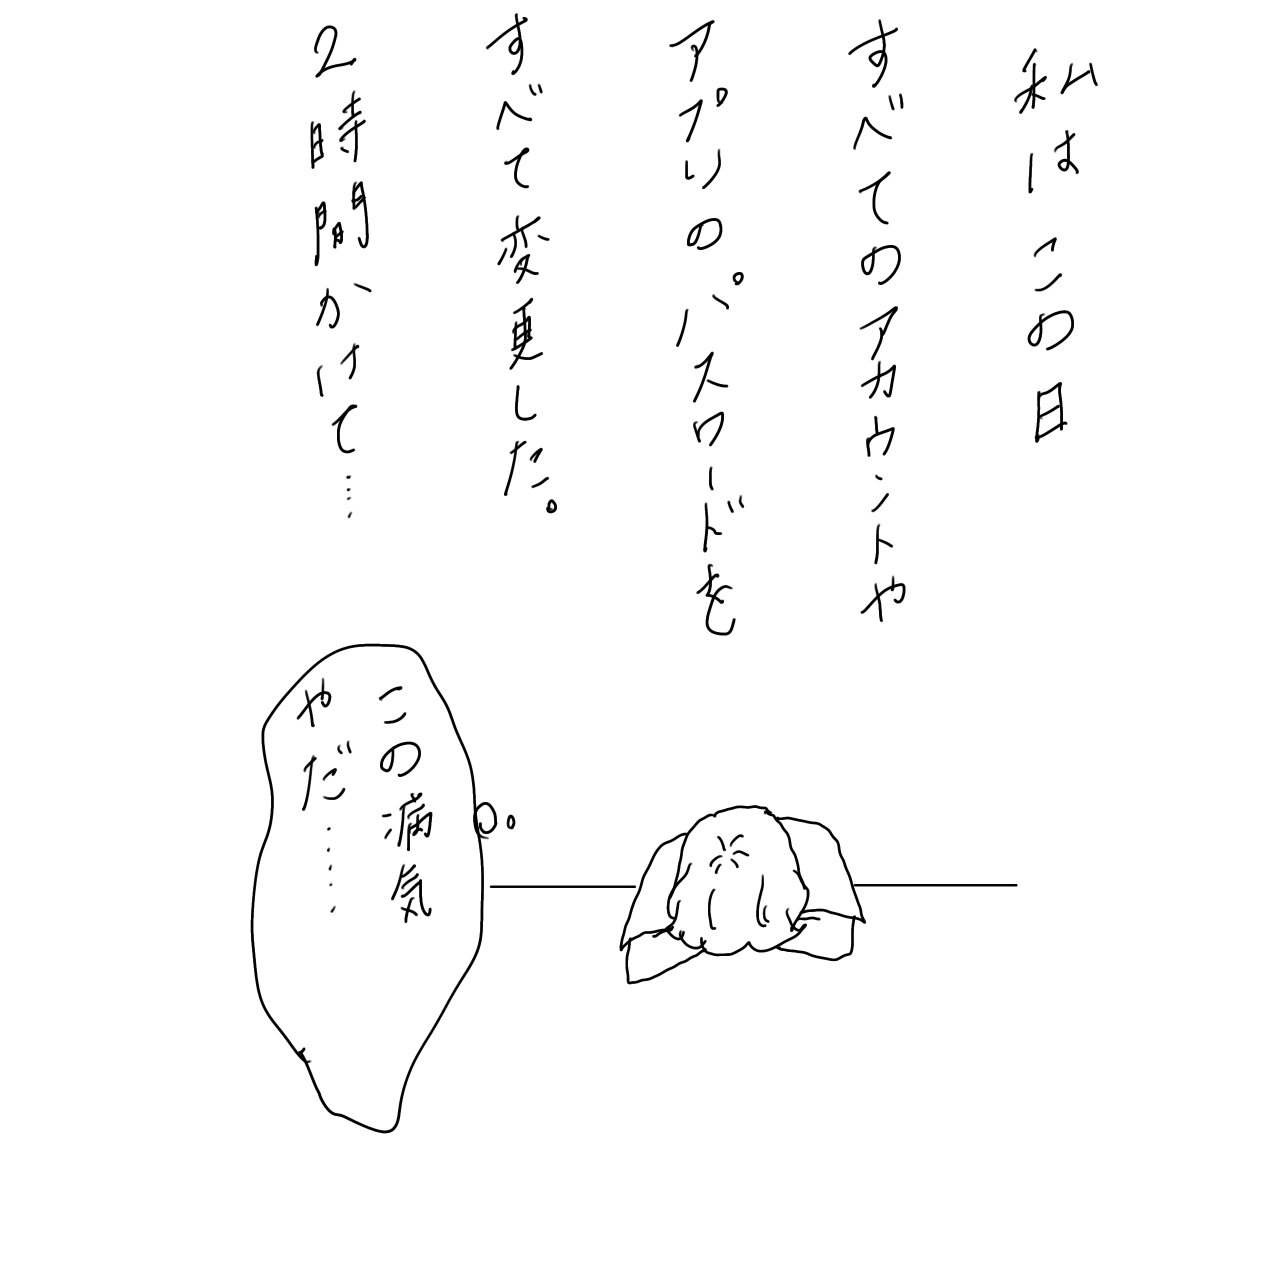 私はこの日
すべてのアカウントや
アプリのパスワードを
すべて変更した。
2時間かけて……
この病気
やだ……